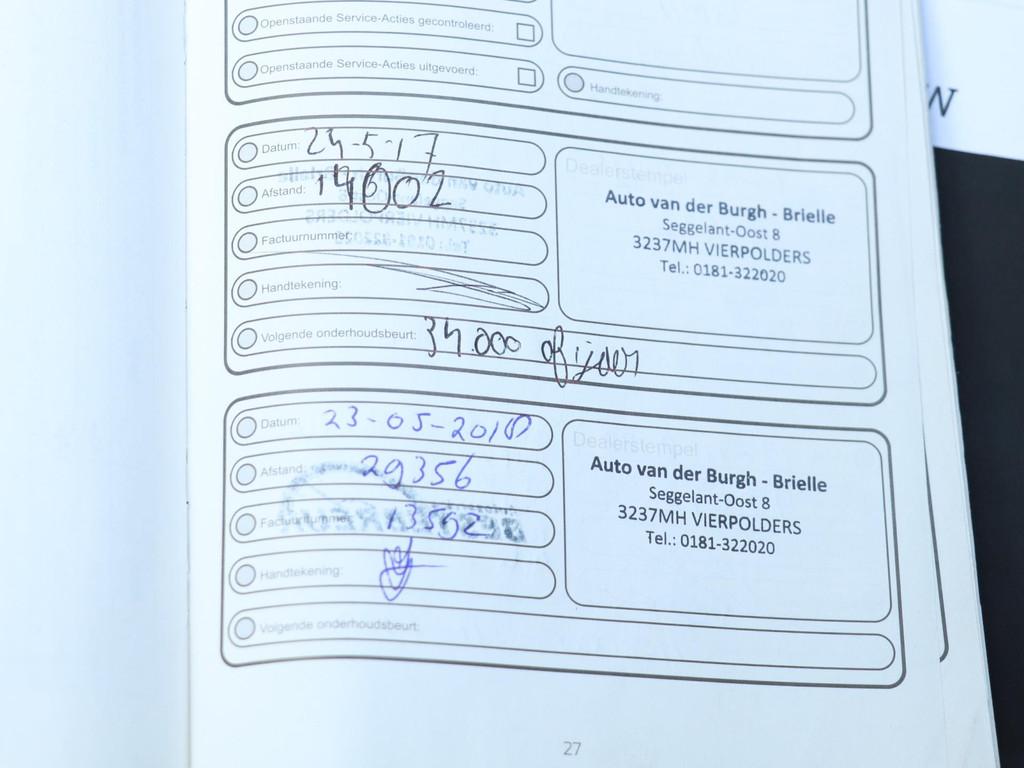 Openstaande Service-Acties gecontroleerd:
Openstaande Service-Acties uitgevoerd:
Handtekening:
Datum: 24-5-17
Afstand: 14602
Factuurnummer:
Handtekening:
Volgende onderhoudsbeurt: 34.000 of ijder
Dealerstempel
Auto van der Burgh - Brielle
Seggelant-Oost 8
3237MH VIERPOLDERS
Tel.: 0181-322020
Datum: 23-05-2018
Afstand: 29356
Factuurnummer: 13502
Handtekening:
Volgende onderhoudsbeurt:
Dealerstempel
Auto van der Burgh - Brielle
Seggelant-Oost 8
3237MH VIERPOLDERS
Tel.: 0181-322020
27